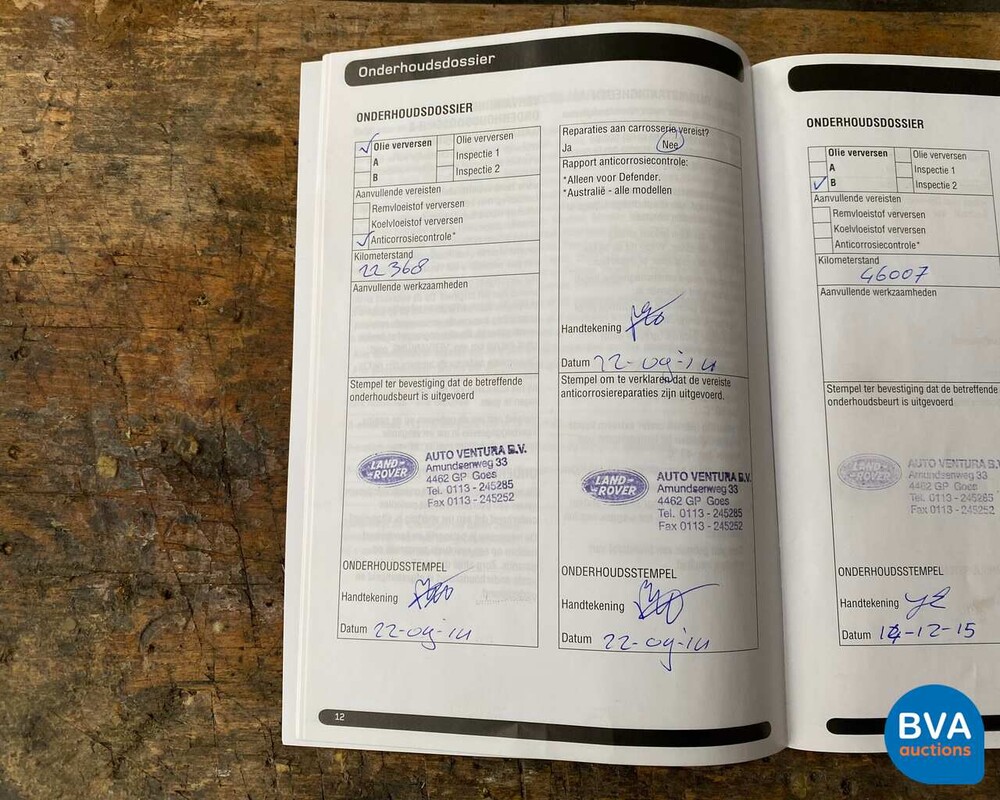 Onderhoudsdossier
ONDERHOUDSDOSSIER
Olie verversen Olie verversen
A Inspectie 1
B Inspectie 2
Aanvullende vereisten
Remvloeistof verversen
Koelvloeistof verversen
Anticorrosiecontrole*
Kilometerstand
22368
Aanvullende werkzaamheden
Stempel ter bevestiging dat de betreffende
onderhoudsbeurt is uitgevoerd
LAND ROVER
AUTO VENTURA B.V.
Amundsenweg 33
4462 GP Goes
Tel. 0113 - 245285
Fax 0113 - 245252
ONDERHOUDSSTEMPEL
Handtekening
Datum 22-09-14
Reparaties aan carrosserie vereist?
Ja Nee
Rapport anticorrosiecontrole:
*Alleen voor Defender.
*Australië - alle modellen
Handtekening
Datum 22-09-14
Stempel om te verklaren dat de vereiste
anticorrosiereparaties zijn uitgevoerd.
LAND ROVER
AUTO VENTURA B.V.
Amundsenweg 33
4462 GP Goes
Tel. 0113 - 245285
Fax 0113 - 245252
ONDERHOUDSSTEMPEL
Handtekening
Datum 22-09-14
12
ONDERHOUDSDOSSIER
Olie verversen Olie verversen
A Inspectie 1
B Inspectie 2
Aanvullende vereisten
Remvloeistof verversen
Koelvloeistof verversen
Anticorrosiecontrole*
Kilometerstand
46007
Aanvullende werkzaamheden
Stempel ter bevestiging dat de betreffende
onderhoudsbeurt is uitgevoerd
LAND ROVER
AUTO VENTURA B.V.
Amundsenweg 33
4462 GP Goes
Tel. 0113 - 245285
Fax 0113 - 245252
ONDERHOUDSSTEMPEL
Handtekening
Datum 14-12-15
BVA
auctions